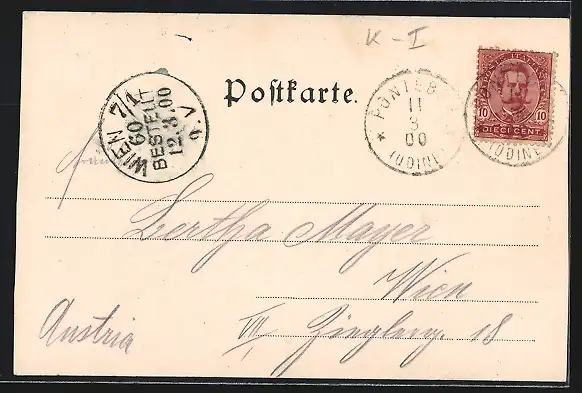 K - I
Postkarte.
WIEN 7/1
60
BESTELLT
12.3.00
9.V
* PONTEBBA
11
3
00
(UDINE)
10 10
DIECI CENT.
(UDINE)
Bertha Mayer
Wien
Austria
VII, 18